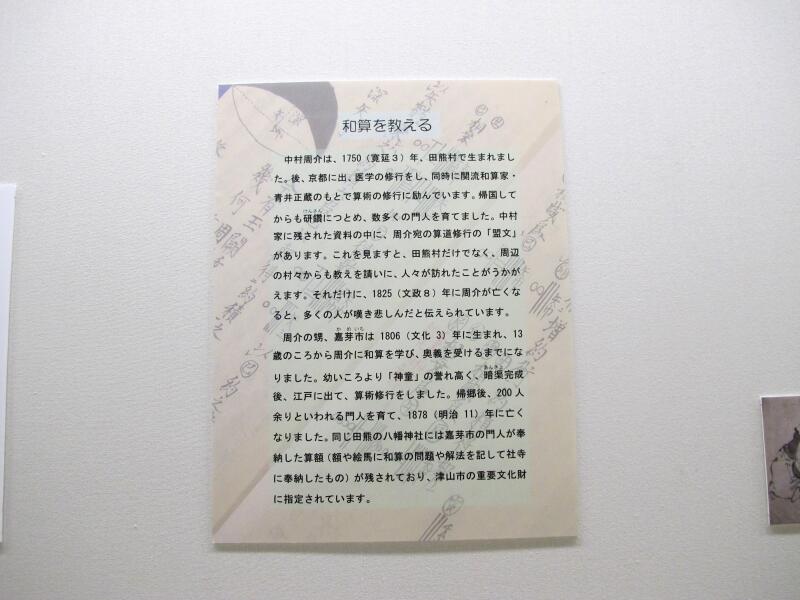 和算を教える
中村周介は、1750（寛延３）年、田熊村で生まれまし
た。後、京都に出、医学の修行をし、同時に関流和算家・
青井正蔵のもとで算術の修行に励んでいます。帰国して
けんさん
からも研鑽につとめ、数多くの門人を育てました。中村
家に残された資料の中に、周介宛の算道修行の「盟文」
があります。これを見ますと、田熊村だけでなく、周辺
の村々からも教えを請いに、人々が訪れたことがうかが
えます。それだけに、1825（文政８）年に周介が亡くな
ると、多くの人が嘆き悲しんだと伝えられています。
かめいち
周介の甥、嘉芽市は 1806（文化 3）年に生まれ、13
歳のころから周介に和算を学び、奥義を受けるまでにな
あんきょ
りました。幼いころより「神童」の誉れ高く、暗渠完成
後、江戸に出て、算術修行をしました。帰郷後、200 人
余りといわれる門人を育て、1878（明治 11）年に亡く
なりました。同じ田熊の八幡神社には嘉芽市の門人が奉
納した算額（額や絵馬に和算の問題や解法を記して社寺
に奉納したもの）が残されており、津山市の重要文化財
に指定されています。